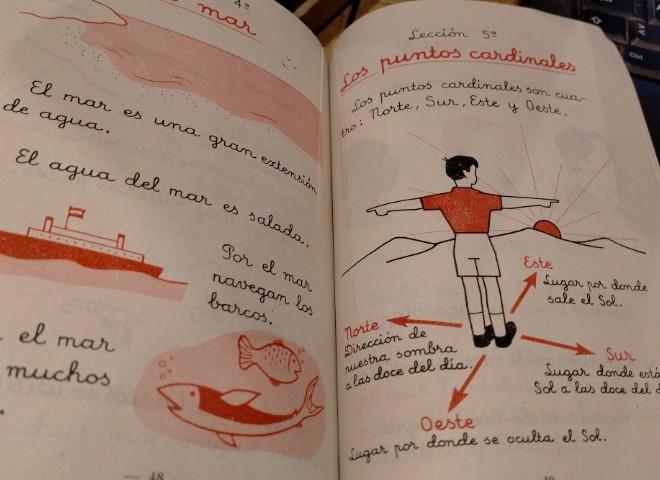 4ª
mar
El mar es una gran extensión
de agua.
El agua del mar es salada.
Por el mar
navegan los
barcos.
el mar
muchos
— 48 —
Lección 5ª
Los puntos cardinales
Los puntos cardinales son cua-
tro: Norte, Sur, Este y Oeste.
Este
Lugar por donde
sale el Sol.
Norte
Dirección de
nuestra sombra
a las doce del día.
Sur
Lugar donde está
Sol a las doce del d
Oeste
Lugar por donde se oculta el Sol.